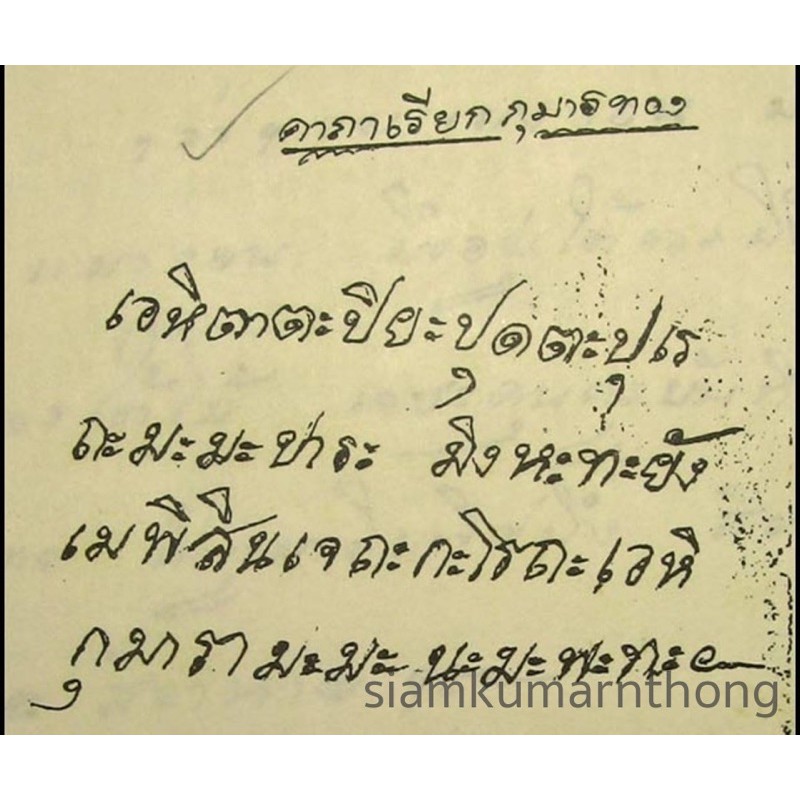 คาถาเรียกกุมารทอง
เอหิตาตะปิยะปุตตะปุเร
ถะมะมะปาระ มิงหะทะยัง
เมพิสินเจถะกะโรถะเอหิ
กุมารามะมะ นะมะพะทะ
siamkumarnthong